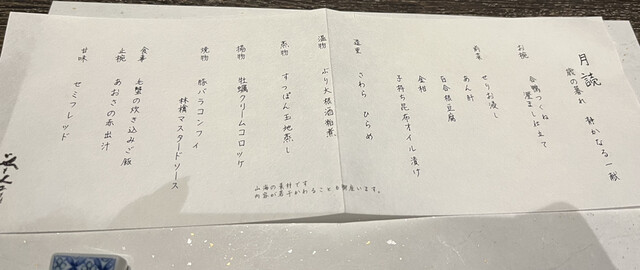 月読
歳の暮れ 静かなる一献
お椀
合鴨つくね
澄まし仕立て
前菜
せりお浸し
あん肝
百合根豆腐
金柑
子持ち昆布オイル漬け
造里
さわら ひらめ
温物
ぶり大根酒粕煮
蒸物
すっぽん玉地蒸し
揚物
牡蠣クリームコロッケ
焼物
豚バラコンフィ
林檎マスタードソース
食事
毛蟹の炊き込みご飯
止椀
あおさの赤出汁
甘味
セミフレッド
山海の素材です
内容が若干かわることも御座います。